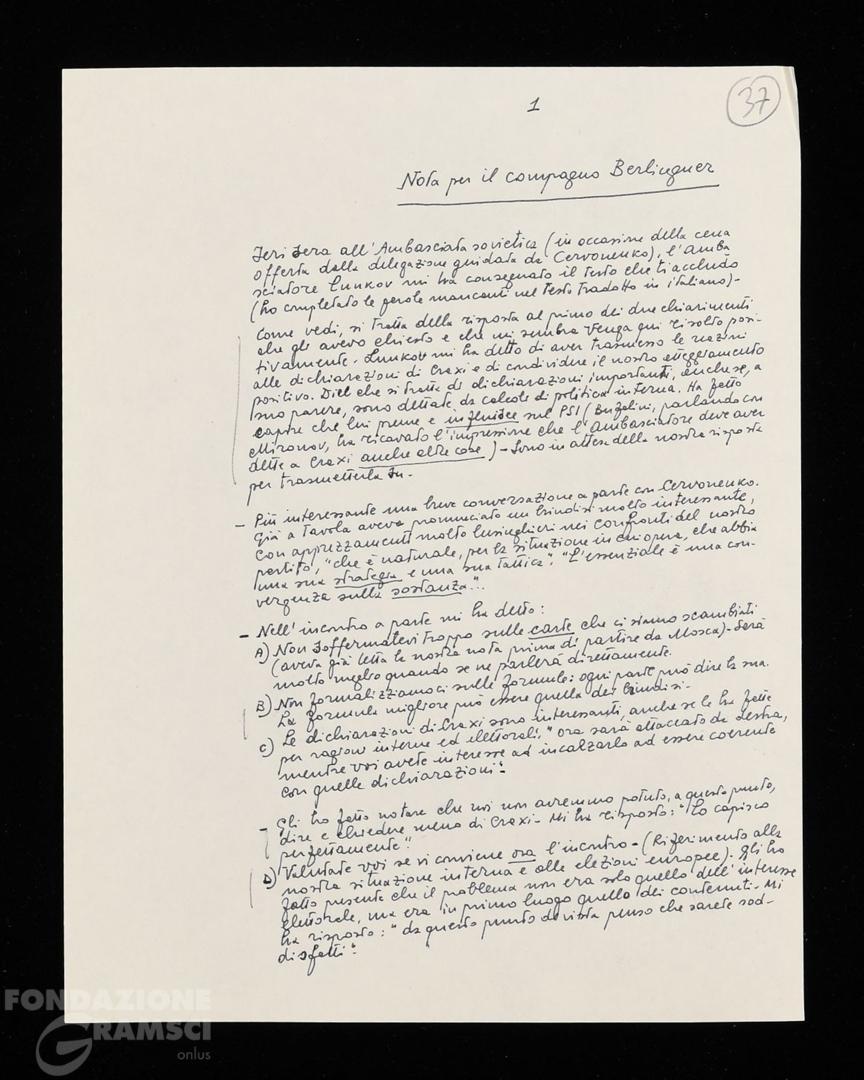 1
37
Nota per il compagno Berlinguer
Ieri sera all'Ambasciata sovietica (in occasione della cena
offerta dalla delegazione guidata da Cervonenko), l'Amba
sciatore Lunkov mi ha consegnato il testo che ti accludo
(ho completato le parole mancanti nel testo tradotto in italiano)-
Come vedi, si tratta della risposta al primo dei due chiarimenti
che gli avevo chiesto e che mi sembra venga qui risolto posi-
tivamente. Lunkov mi ha detto di aver trasmesso le reazioni
alle dichiarazioni di Craxi e di condividere il nostro atteggiamento
positivo. Dice che si tratta di dichiarazioni importanti, anche se, a
suo parere, sono dettate da calcolo di politica interna. Ha fatto
capire che lui preme e influisce sul PSI (Bufalini, parlando con
Mironov, ha ricavato l'impressione che l'Ambasciatore deve aver
dette a Craxi anche altre cose) - Sono in attesa della nostra risposta
per trasmetterla su.
- Più interessante una breve conversazione a parte con Cervonenko.
Già a tavola aveva pronunciato un brindisi molto interessante,
con apprezzamenti molto lusinghieri nei confronti del nostro
partito, "che è naturale, per la situazione in cui opera, che abbia
una sua strategia e una sua tattica". "L'essenziale è una con-
vergenza sulla sostanza".
- Nell'incontro a parte mi ha detto:
A) Non soffermatevi troppo sulle carte che ci siamo scambiati
(aveva già letta la nostra nota prima di partire da Mosca)- Sarà
molto meglio quando se ne parlerà direttamente.
B) Non formalizziamoci sulle formule: ogni parte può dire la sua.
La formula migliore può essere quella dei brindisi.
C) Le dichiarazioni di Craxi sono interessanti, anche se le ha fatte
per ragioni interne ed elettorali. "Ora sarà attaccato da destra,
mentre voi avete interesse ad incalzarlo ad essere coerente
con quelle dichiarazioni".
Gli ho fatto notare che noi non avremmo potuto, a questo punto,
dire e chiedere meno di Craxi- Mi ha risposto: "Lo capisco
perfettamente".
D) Valutate voi se vi conviene ora l'incontro- (Riferimento alla
nostra situazione interna e alle elezioni europee). Gli ho
fatto presente che il problema non era solo quello dell'interesse
elettorale, ma era in primo luogo quello dei contenuti- Mi
ha risposto: "da questo punto di vista penso che sarete sod-
disfatti".
FONDAZIONE
GRAMSCI
onlus